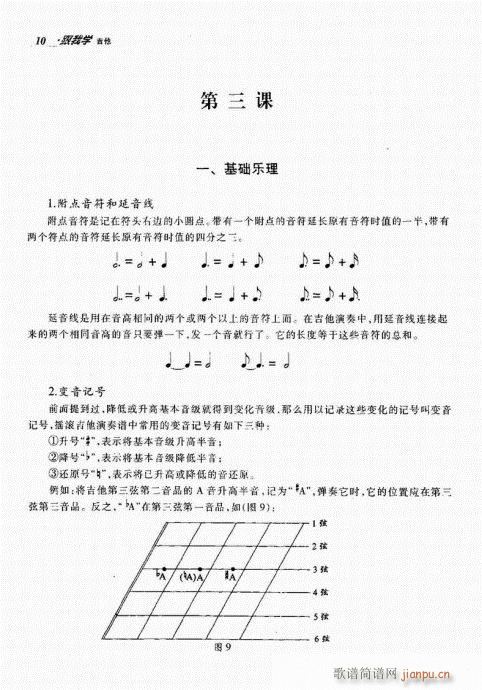 10 ·跟我学 吉他
第三课
一、基础乐理
1.附点音符和延音线
附点音符是记在符头右边的小圆点。带有一个附点的音符延长原有音符时值的一半,带有
两个符点的音符延长原有音符时值的四分之三。
延音线是用在音高相同的两个或两个以上的音符上面。在吉他演奏中,用延音线连接起
来的两个相同音高的音只要弹一下,发一个音就行了。它的长度等于这些音符的总和。
2.变音记号
前面提到过,降低或升高基本音级就得到变化音级,那么用以记录这些变化的记号叫变音
记号,摇滚吉他演奏谱中常用的变音记号有如下三种:
①升号“♯”,表示将基本音级升高半音;
②降号“♭”,表示将基本音级降低半音;
③还原号“♮”,表示将已升高或降低的音还原。
例如:将吉他第三弦第二音品的A音升高半音,记为“♯A”,弹奏它时,它的位置应在第三
弦第三音品。反之,“♭A”在第三弦第一音品,如(图9):
1弦
2弦
3弦
♭A (♮A)A ♯A
4弦
5弦
6弦
图9
歌谱简谱网 jianpu.cn